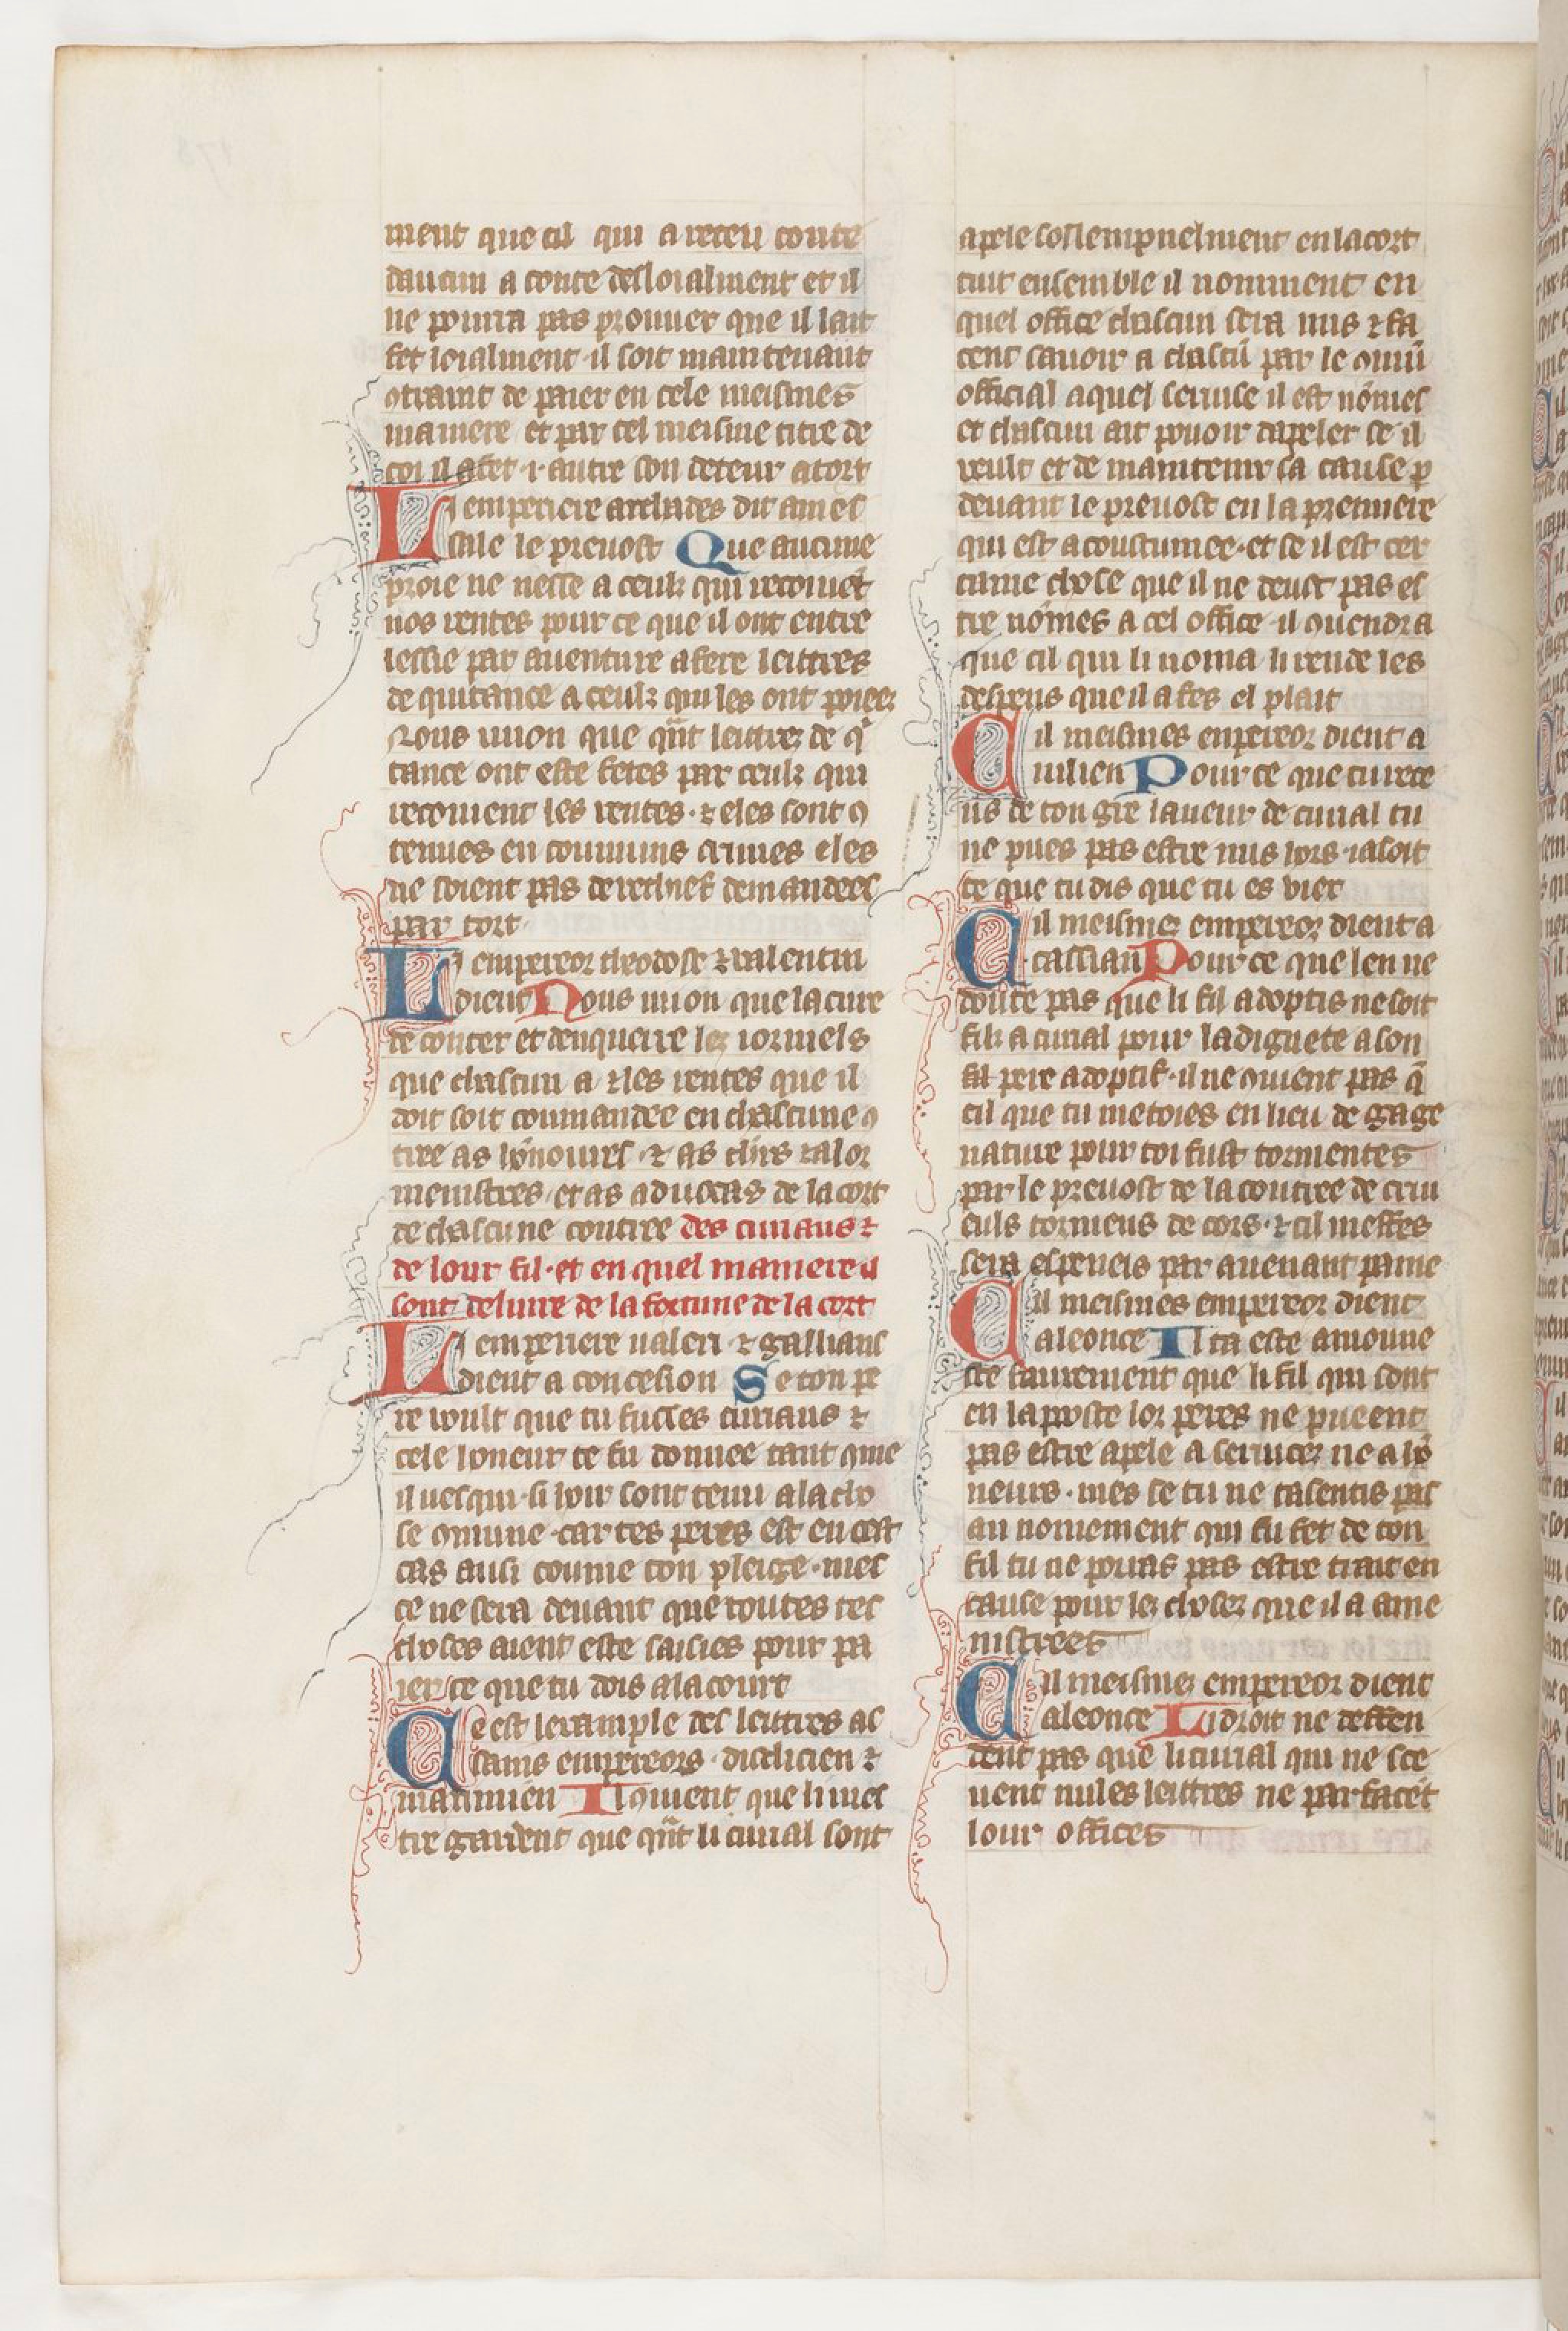 ment que cil qui a receu conte
daucun a conte desloialment et il
ne pourra pas prouuer que il lait
fet loialment · il soit maintenant
ꝯtraint de paier en cele meismes
maniere et par cel meisme titre de
coi il a fet · i · autre son deteur a tort
Li emperiere archades dit a mes
sale le preuost Que aucune
proie ne nesse a ceulz qui recoiuēt
nos rentes pour ce que il ont entre
lessie par auenture a fere leittres
de quitance a ceulz qui les ont poiees
Nous uolon que qn̄t leittrez de q̓
tance ont este fetes par ceulz qui
recoiuent les rentes · ⁊ eles sont ꝯ
tenues en communs crimes eles
ne soient pas derechief demandees
par tort
Li empereor theodose ⁊ valentin
dient Nous uolon que la cure
de conter et denquerre les iornels
que chascun a ⁊ les rentes que il
doit soit commandee en chascune ꝯ
tree as hōnoures · ⁊ as clers ⁊ a lor
menistres · et as aduocas de la cort
de chascune contree des curiaus ⁊
de lour fil · et en quel maniere il
sont deliure de la fortune de la cort
Li emperiere valeri ⁊ gallians
dient a concesion Se ton pe
re voult que tu fusses curiaus ⁊
cele honeur te fu donnee tant ꝯme
il uesqui · si hoir sont tenu a la cho
se ꝯmune · car tes peres est en cest
cas ausi comme ton pleige · mes
ce ne sera deuant que toutes tes
choses aient este saisies pour pa
ier ce que tu dois a la court
Ce est lexample des leittres as
sains empereors · dioclicien ⁊
maximien Il ꝯuient que li mes
tre gardent que qn̄t li curial sont
apele sollempnelment en la cort
tuit ensemble il nomment en
quel office chascun sera mis ⁊ fa
cent sauoir a chascū par le ꝯmū
official a quel seruise il est nōmes
et chascun ait pouoir dapeler se il
veult et de maintenir sa cause ꝑ
deuant le preuost en la premiere
qui est acoustumee · et se il est cer
taine chose que il ne deust pas es
tre nōmes a cel office · il ꝯuendra
que cil qui li noma li rende les
despens que il a fes el plait
Cil meismes empereor dient a
iulien Pour ce que tu rece
us de ton gre laneur de curial tu
ne pues pas estre mis hors · ia soit
ce que tu dis que tu es vier
Cil meismes empereor dient a
cassian Pour ce que len ne
doute pas que li fil adoptis ne soit
filz a curial pour la dignete a son
fil pere adoptif · il ne ꝯuient pas q̄
cil que tu metoies en lieu de gage
nature pour toi fust tormentes
par le preuost de la contree de cru
euls tormens de cors · ⁊ cil meffes
sera espeneis par auenant paine
Cil meismes empereor dient
a leonce Il ta este amoune
ste faussement que li fil qui sont
en la poste lor peres ne pueent
pas estre apele a seruicez ne a hō
neurs · mes se tu ne tasentis pas
au nomement qui fu fet de ton
fil tu ne pouras pas estre trait en
cause pour les chosez que il a ame
nistrees
Cil meismes empereor dient
a leonce Li droit ne deffen
dent pas que li curial qui ne sce
uent nules leittres ne parfacēt
lour offices